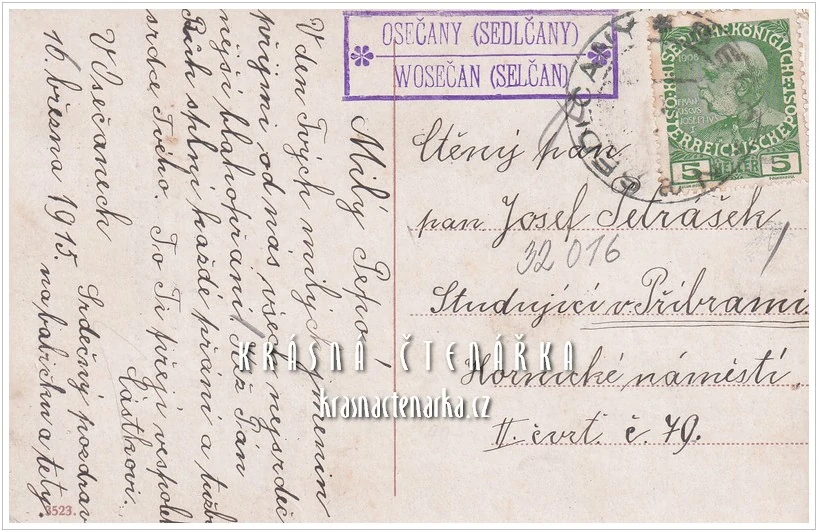 OSEČANY (SEDLČANY)
WOSEČAN (SELČAN)
SEDLČANY
KAISERLICHE KÖNIGLICHE
ÖSTERREICHISCHE POST
5 HELLER 5
Milý Pepo!
V den Tvých milých jmenin
přijmi od nás všech nejsrdeč
nejší blahopřání. Kéž Ti Pán
Bůh splní každé přání a tužbu
srdce Tvého. To Ti přejí vespolek
Částkovi.
V Vsečanech Srdečný pozdrav
16. března 1915. na babičku a tety.
Ctěný pan
pan Josef Petrášek
32 016
Studující v Příbrami
Hornické náměstí,
II. čvrt. č. 79.
KRÁSNÁ ČTENÁŘKA
krasnactenarka.cz
3523.